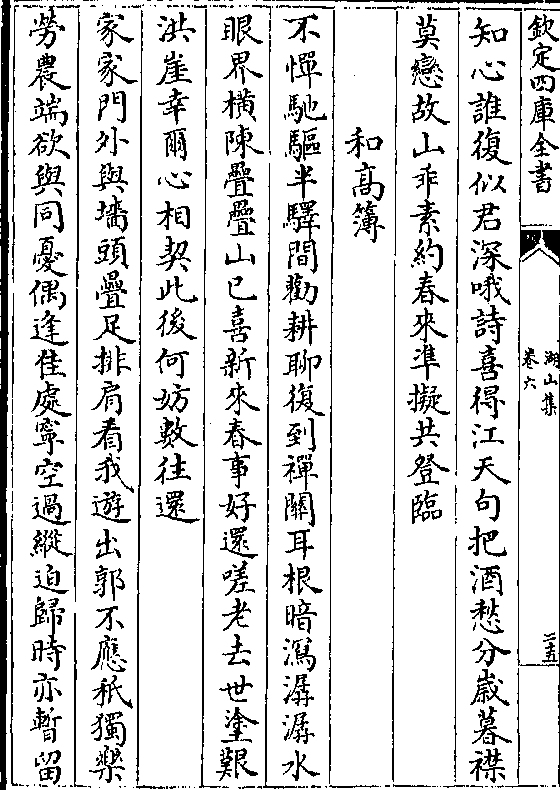 欽定四庫全書
湖山集
卷六
二五
知心誰復似君深哦詩喜得江天句把酒愁分歲暮襟
莫戀故山乖素約春來準擬共登臨
和高簿
不憚馳驅半驛間勸耕聊復到禪關耳根暗瀉潺潺水
眼界橫陳疊疊山已喜新來春事好還嗟老去世塗艱
洪崖幸爾心相契此後何妨數往還
家家門外與墻頭疊足排肩看我遊出郭不應秖獨樂
勞農端欲與同憂偶逢佳處寧空過縱迫歸時亦暫留